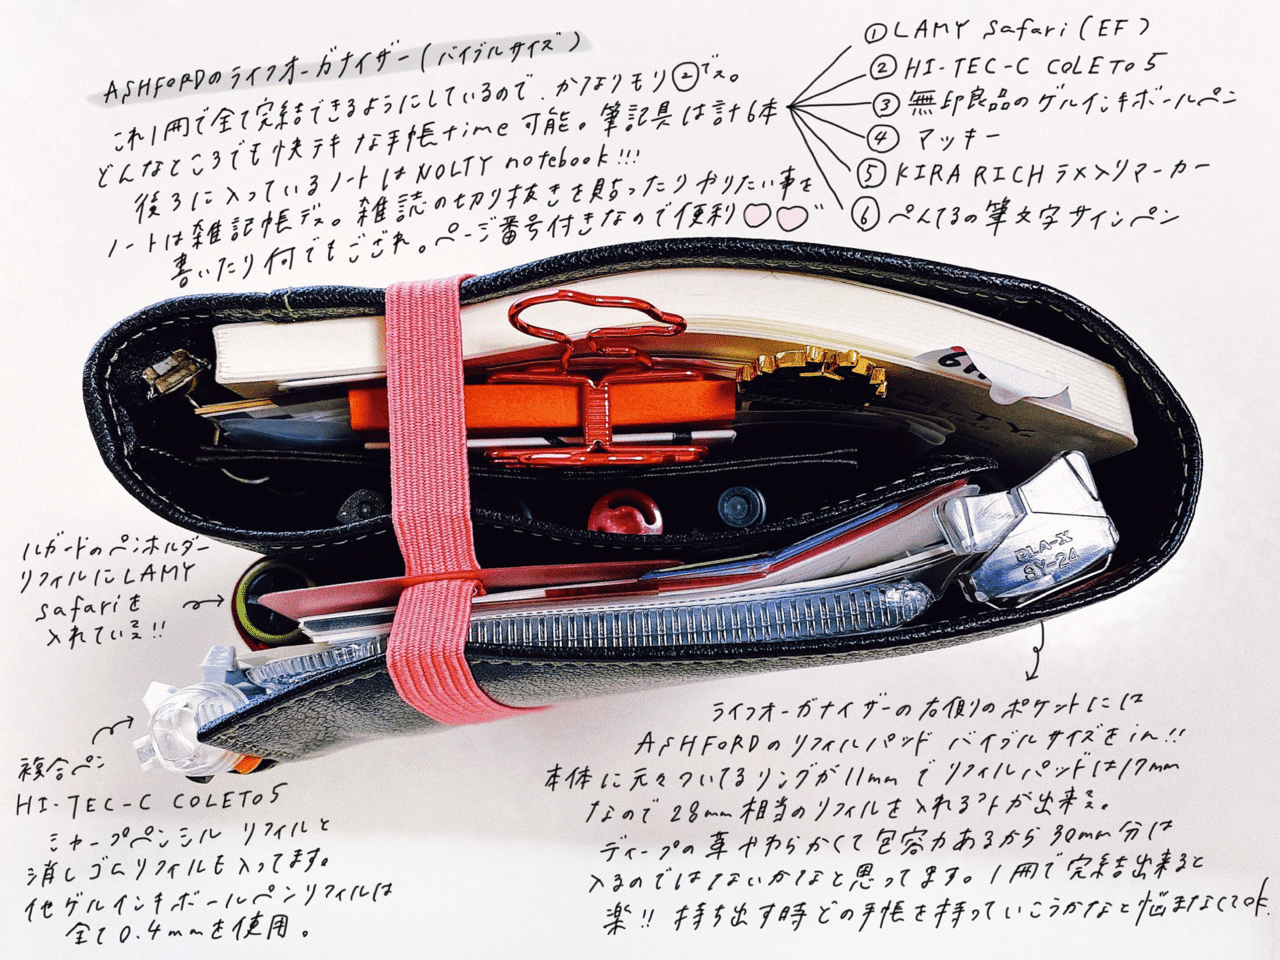 ASHFORDのライフオーガナイザー(バイブルサイズ)
これ1冊で全て完結できるようにしているので、かなりモリ②です。
どんなところでも快テキな手帳time可能。筆記具は計6本
後ろに入っているノートはNOLTY notebook!!!
ノートは雑記帳デス。雑誌の切り抜きを貼ったりやりたい事を
書いたり何でもござれ。ページ番号付きなので便利♡♡
①LAMY Safari(EF)
②HI-TEC-C COLETO 5
③無印良品のゲルインキボールペン
④マッキー
⑤KIRA RICH ラメ入りマーカー
⑥ぺんてるの筆文字サインペン
ルガードのペンホルダー
リフィルにLAMY
Safariを
入れています!!
複合ペン
HI-TEC-C COLETO5
シャープペンシル リフィルと
消しゴムリフィルも入ってます。
他ゲルインキボールペンリフィルは
全て0.4mmを使用。
PLA-X
SY-24
ライフオーガナイザーの右側のポケットには
ASHFORDのリフィルパッド バイブルサイズをin!!
本体に元々ついてるリングが11mmでリフィルパッドは17mm
なので28mm相当のリフィルを入れるコトが出来ます。
ディープの革やわらかくて包容力あるから30mm分は
入るのではないかなと思ってます。1冊で完結出来ると
楽!!持ち出す時どの手帳を持っていこうかなと悩まなくてOK.